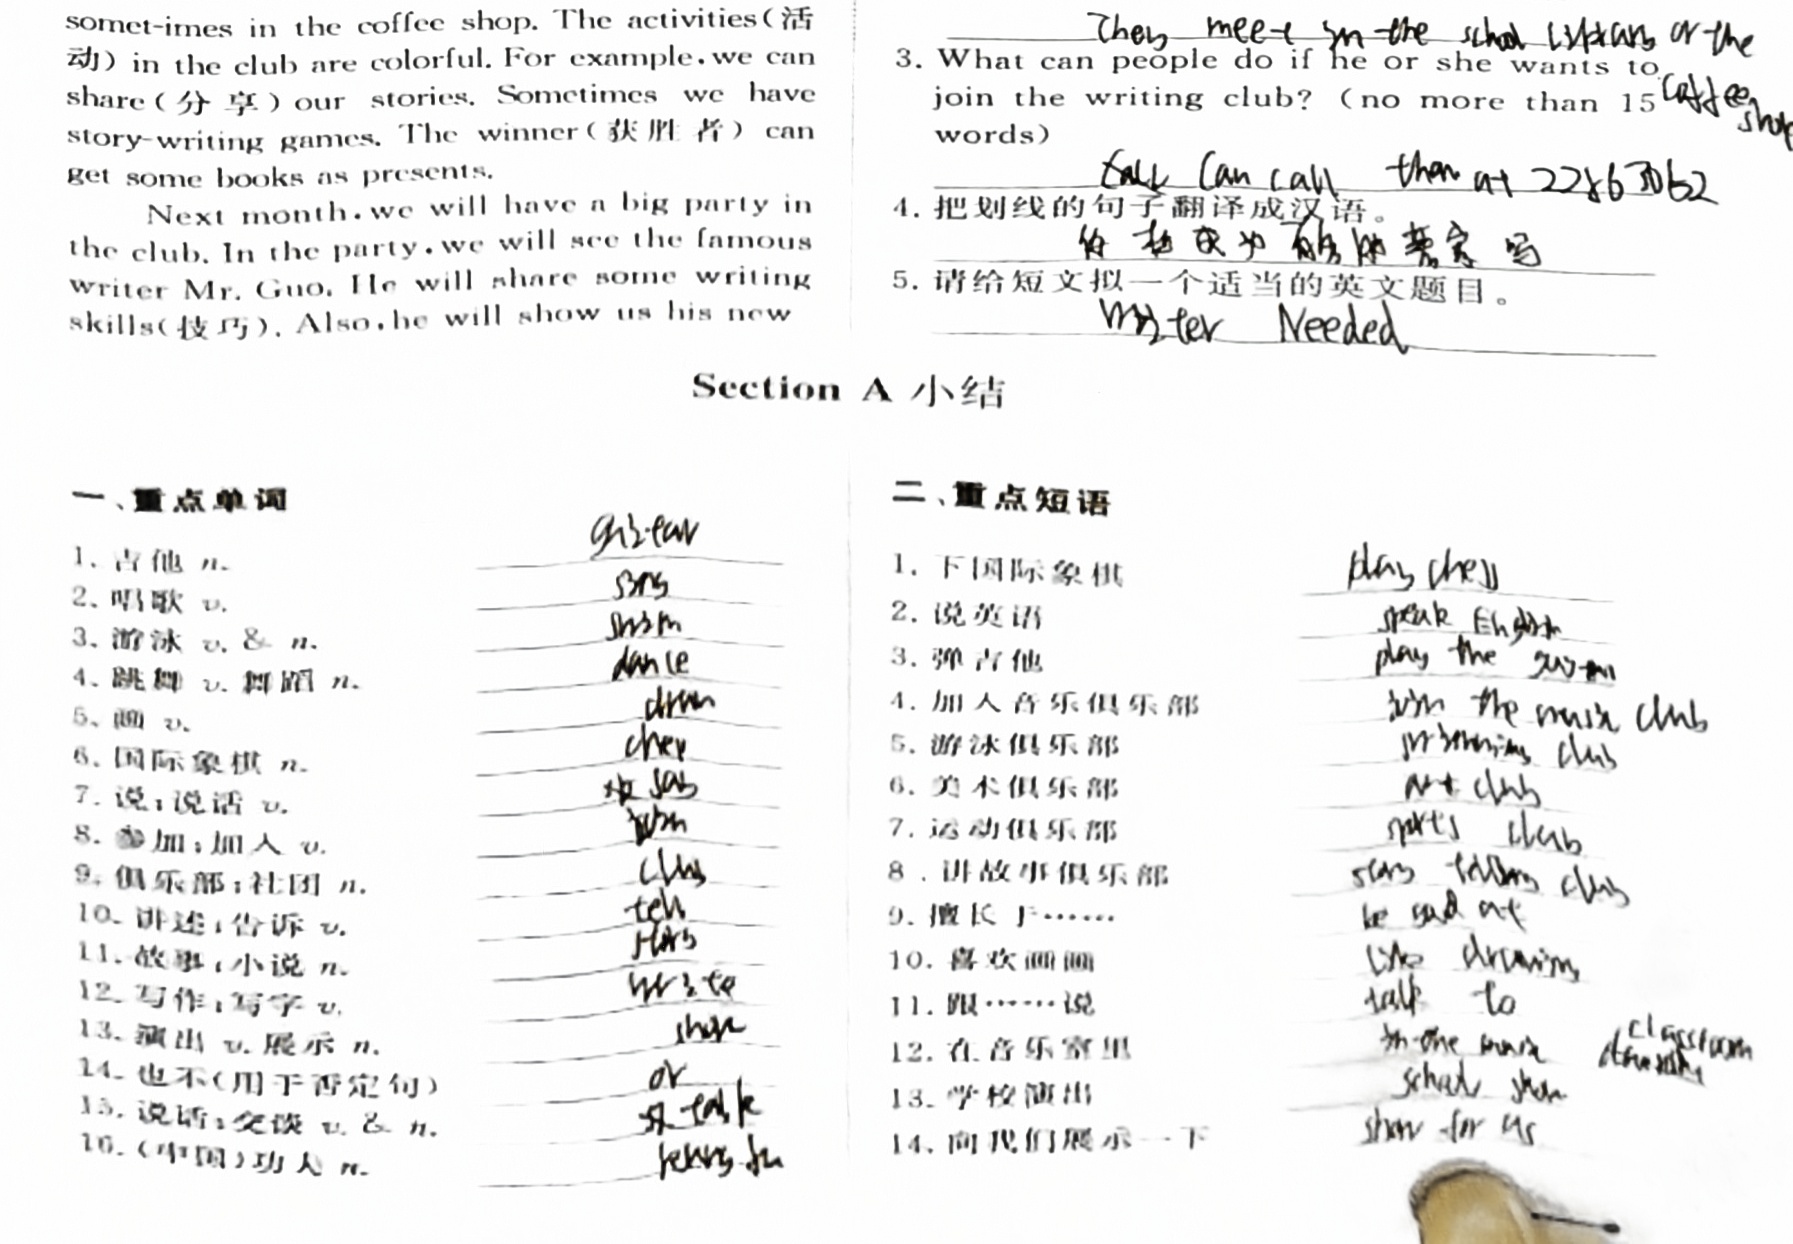 somet-imes in the coffee shop. The activities(活
动) in the club are colorful. For example, we can
share(分享) our stories. Sometimes we have
story-writing games. The winner(获胜者) can
get some books as presents.
Next month, we will have a big party in
the club. In the party, we will see the famous
writer Mr. Guo. He will share some writing
skills(技巧). Also, he will show us his new
They meet in the school library or the
coffee shop
3. What can people do if he or she wants to
join the writing club? (no more than 15
words)
Can call them at 22863062
4. 把划线的句子翻译成汉语。
5. 请给短文拟一个适当的英文题目。
Needed
Section A 小结
一、重点单词
1. 吉他 n. guitar
2. 唱歌 v. sing
3. 游泳 v. & n. swim
4. 跳舞 v. 舞蹈 n. dance
5. 画 v. draw
6. 国际象棋 n. chess
7. 说;说话 v. say
8. 参加;加入 v. join
9. 俱乐部;社团 n. club
10. 讲述;告诉 v. tell
11. 故事;小说 n. story
12. 写作;写字 v. write
13. 演出 v. 展示 n. show
14. 也不(用于否定句) or
15. 说话;交谈 v. & n. talk
16. (中国)功夫 n. kung fu
二、重点短语
1. 下国际象棋 play chess
2. 说英语 speak English
3. 弹吉他 play the guitar
4. 加入音乐俱乐部 join the music club
5. 游泳俱乐部 swimming club
6. 美术俱乐部 art club
7. 运动俱乐部 sports club
8. 讲故事俱乐部 story telling club
9. 擅长于…… be good at
10. 喜欢画画 like drawing
11. 跟……说 talk to
12. 在音乐室里 in the music classroom
13. 学校演出 school show
14. 向我们展示一下 show for us